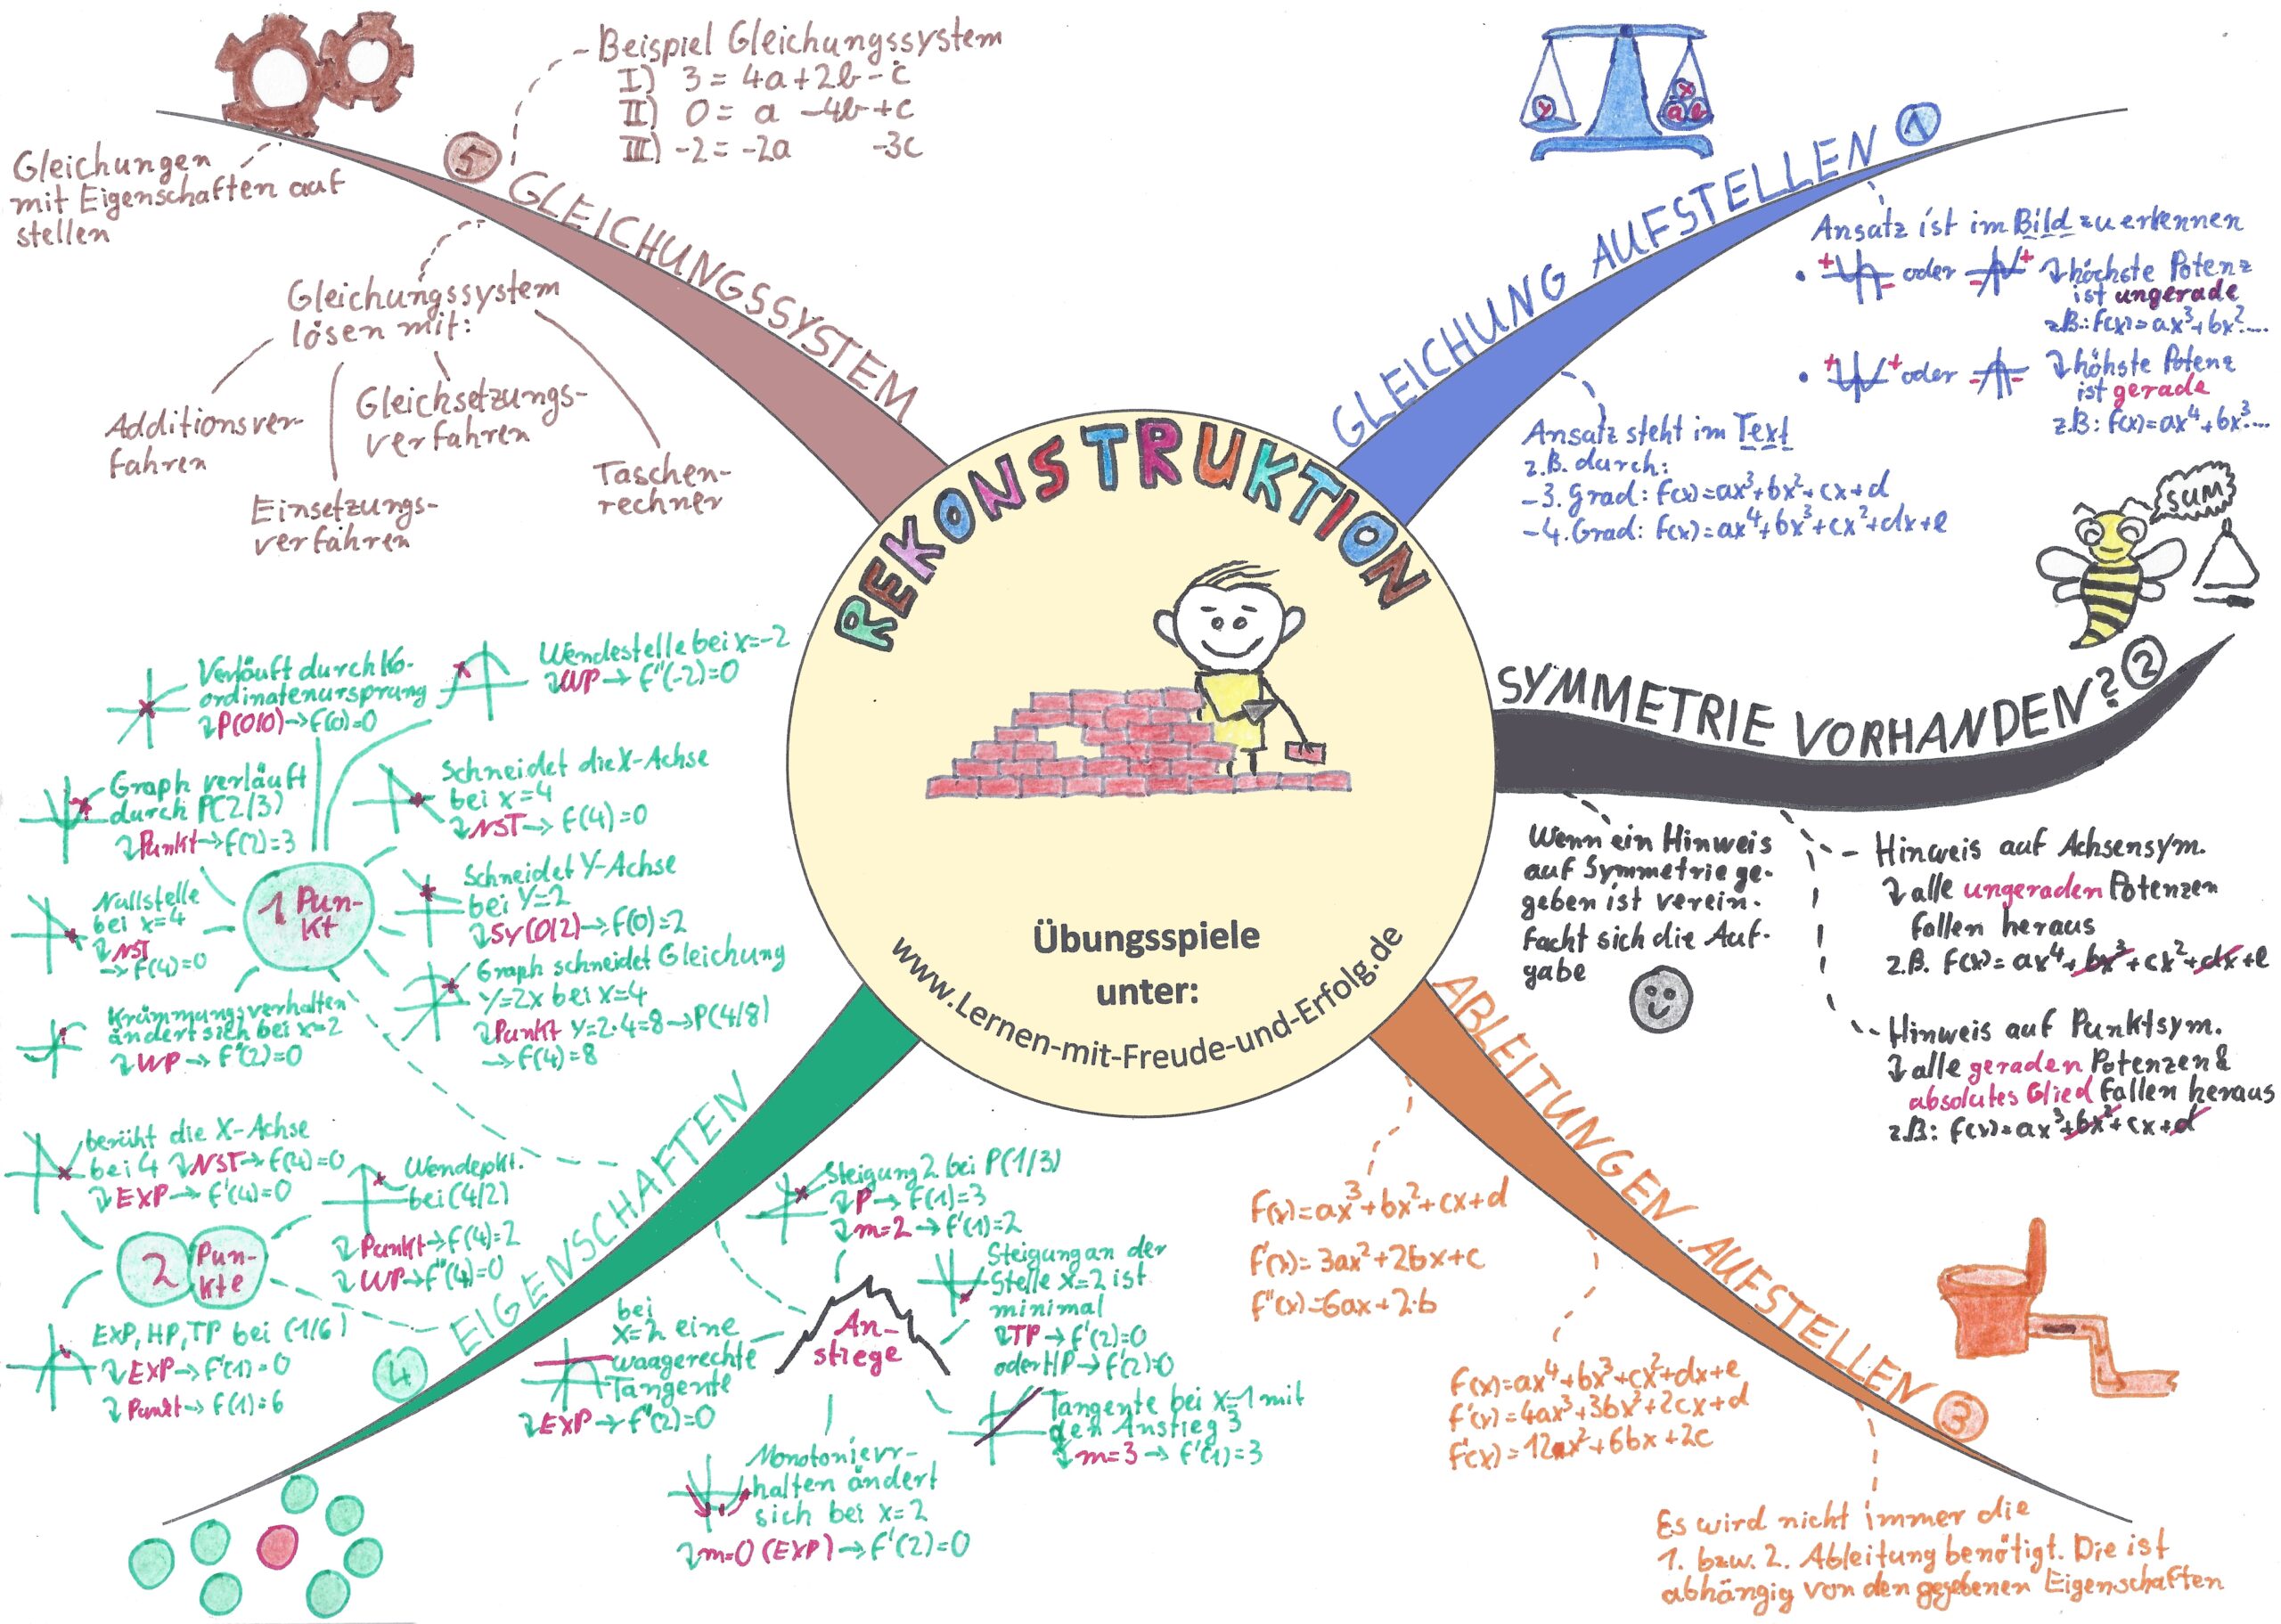 REKONSTRUKTION
Übungsspiele
unter:
www.Lernen-mit-Freude-und-Erfolg.de
GLEICHUNG AUFSTELLEN 1
y
x
a b
Ansatz ist im Bild zu erkennen
+ - oder - + höchste Potenz
ist ungerade
z.B.: f(x)=ax³+bx²....
+ + oder - - höhste Potenz
ist gerade
z.B: f(x)=ax⁴+bx³....
Ansatz steht im Text
z.B. durch:
-3. Grad: f(x)=ax³+bx²+cx+d
-4. Grad: f(x)=ax⁴+bx³+cx²+dx+e
SYMMETRIE VORHANDEN? 2
SUM
Wenn ein Hinweis
auf Symmetrie ge-
geben ist verein-
facht sich die Auf-
gabe
- Hinweis auf Achsensym.
↳ alle ungeraden Potenzen
fallen heraus
z.B. f(x)=ax⁴+bx³+cx²+dx+e
- Hinweis auf Punktsym.
↳ alle geraden Potenzen &
absolutes Glied fallen heraus
z.B: f(x)=ax³+bx²+cx+d
ABLEITUNGEN AUFSTELLEN 3
f(x)=ax³+bx²+cx+d
f'(x)=3ax²+2bx+c
f''(x)=6ax+2·b
f(x)=ax⁴+bx³+cx²+dx+e
f'(x)=4ax³+3bx²+2cx+d
f'(x)=12ax²+6bx+2c
Es wird nicht immer die
1. bzw. 2. Ableitung benötigt. Die ist
abhängig von den gegebenen Eigenschaften
EIGENSCHAFTEN 4
1 Pun-
kt
Verläuft durch Ko-
ordinatenursprung
↳ P(0|0) → f(0)=0
Wendestelle bei x=-2
↳ WP → f''(-2)=0
Graph verläuft
durch P(2/3)
↳ Punkt → f(2)=3
Schneidet die X-Achse
bei x=4
↳ NST → f(4)=0
Nullstelle
bei x=4
↳ NST
→ f(4)=0
Schneidet Y-Achse
bei Y=2
↳ Sy(0|2) → f(0)=2
Krümmungsverhalten
ändert sich bei x=2
↳ WP → f''(2)=0
Graph schneidet Gleichung
Y=2x bei x=4
↳ Punkt Y=2·4=8 → P(4/8)
→ f(4)=8
2 Pun-
kte
berüht die X-Achse
bei 4 ↳ NST → f(4)=0
↳ EXP → f'(4)=0
Wendepkt.
bei (4/2)
↳ Punkt → f(4)=2
↳ WP → f''(4)=0
EXP, HP, TP bei (1/6)
↳ EXP → f'(1)=0
↳ Punkt → f(1)=6
An-
stiege
Steigung 2 bei P(1/3)
↳ P → f(1)=3
↳ m=2 → f'(1)=2
Steigung an der
Stelle x=2 ist
minimal
↳ TP → f'(2)=0
oder HP → f'(2)=0
bei
x=2 eine
waagerechte
Tangente
↳ EXP → f'(2)=0
Tangente bei x=1 mit
den Anstieg 3
↳ m=3 → f'(1)=3
Monotonievr-
halten ändert
sich bei x=2
↳ m=0 (EXP) → f'(2)=0
GLEICHUNGSSYSTEM 5
Gleichungen
mit Eigenschaften auf
stellen
- Beispiel Gleichungssystem
I) 3 = 4a+2b-c
II) 0 = a -4b+c
III) -2 = -2a -3c
Gleichungssystem
lösen mit:
Additionsver-
fahren
Einsetzungs-
verfahren
Gleichsetzungs-
verfahren
Taschen-
rechner